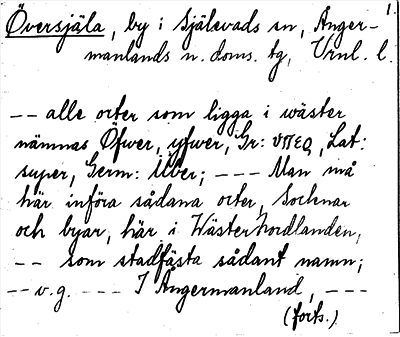 1.
Översjäla, by i Själevads sn, Ånger-
manlands n. doms. tg, Vrnl. l.
-- alle orter som ligga i wäster
nämnas Öfwer, yfwer, Gr: υπερ, Lat:
super, Germ: Über; --- Man må
här införa sådana orter, Socknar
och byar, här i WästerNordlanden,
-- som stadfästa sådant namn;
-- v.g. ---- I Ångermanland, ---
(forts.)